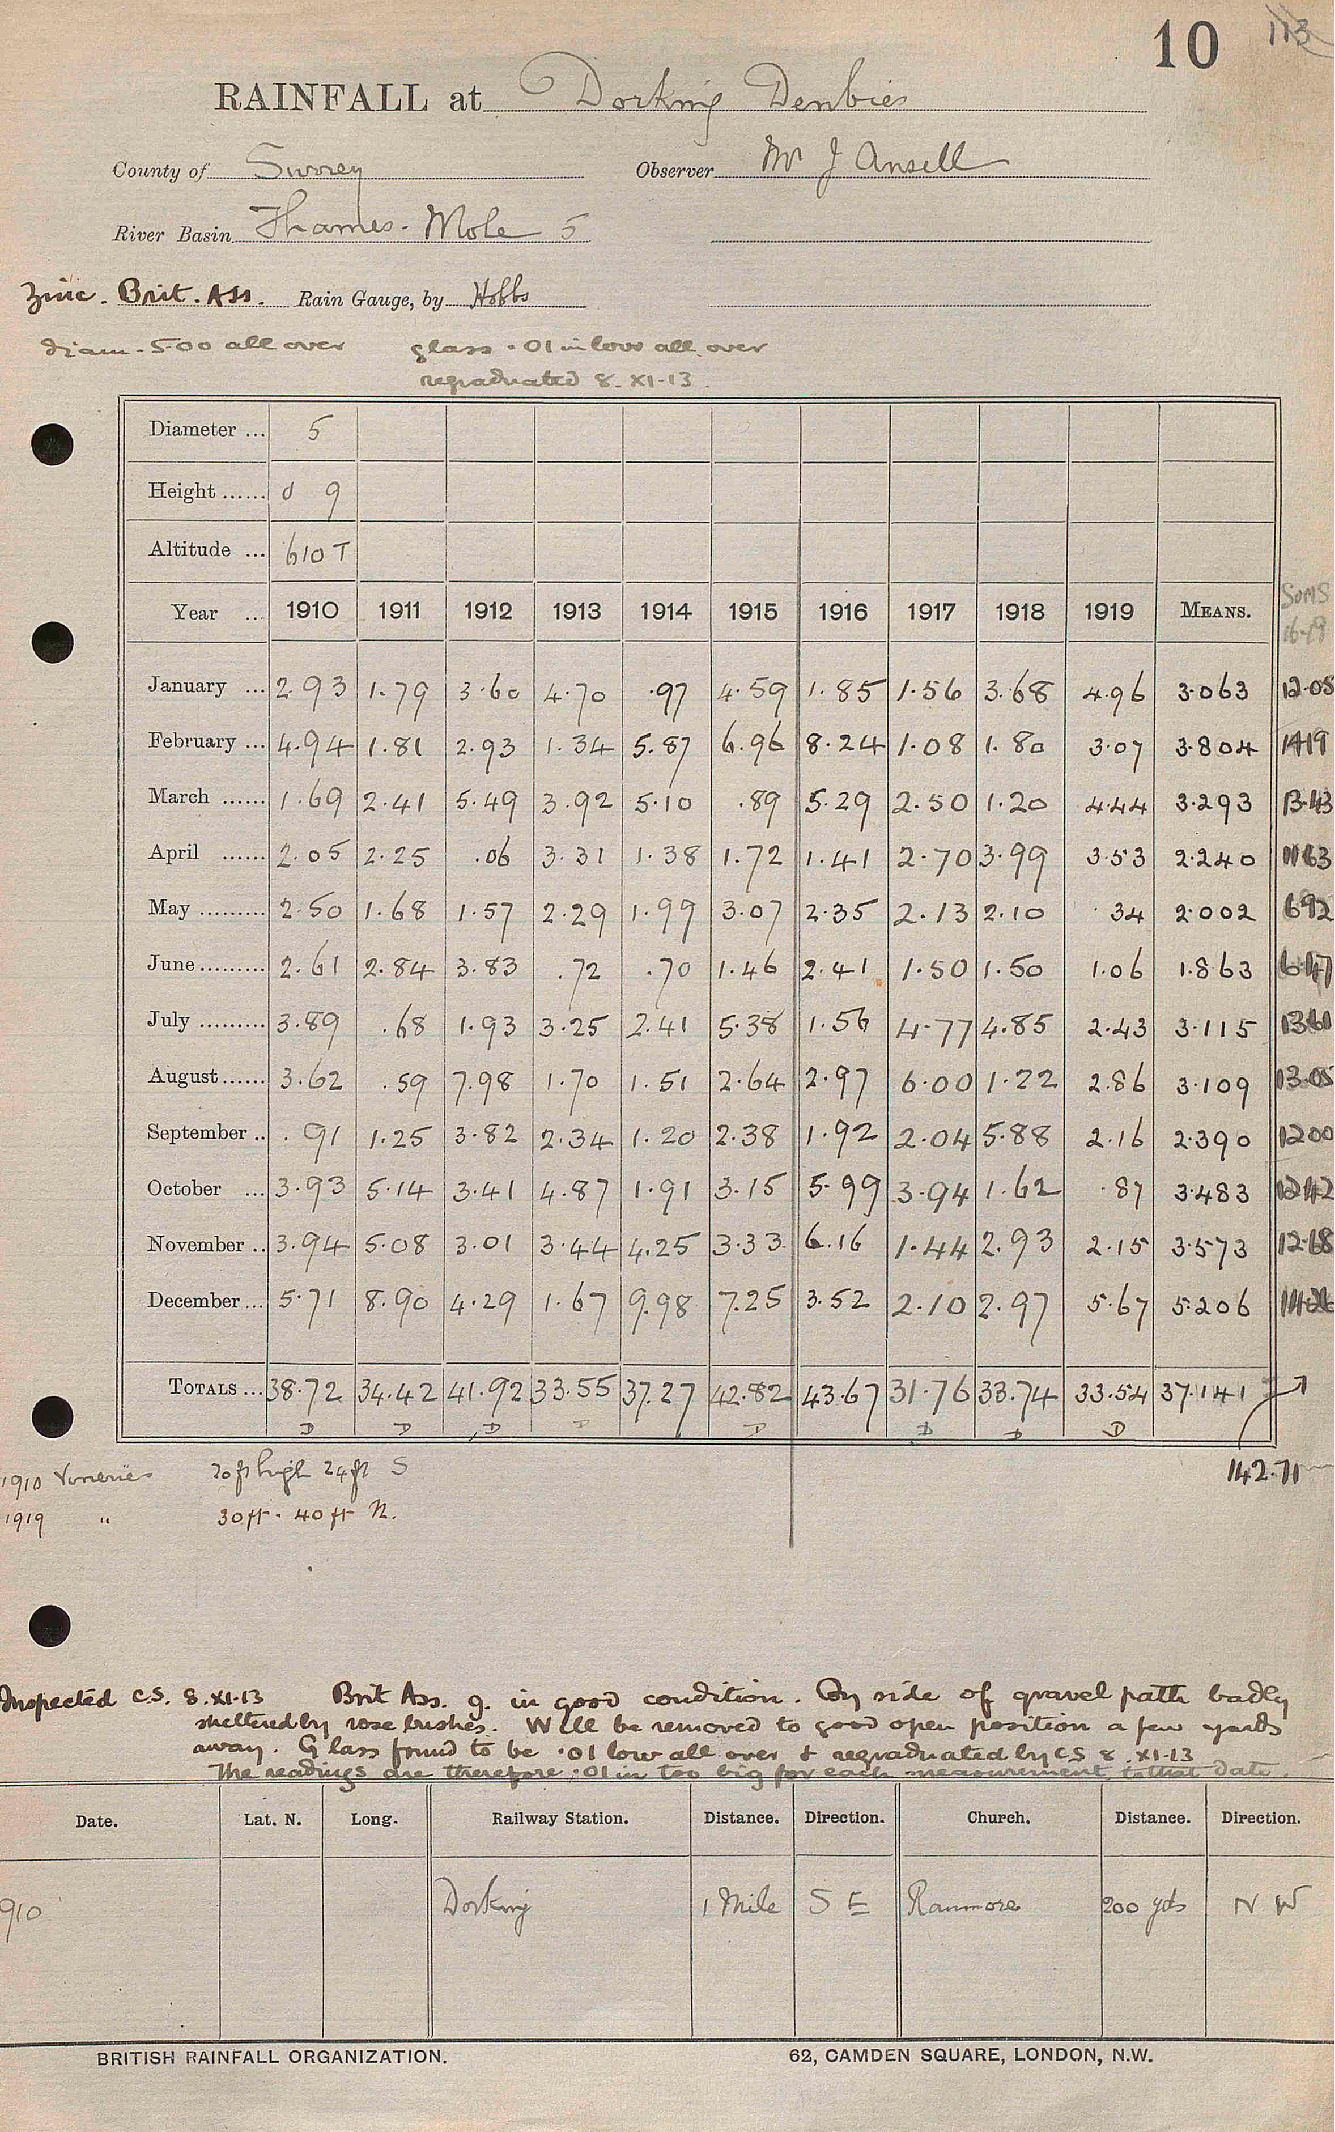 10 113
RAINFALL at Dorking Denbies
County of Surrey Observer Mr J Ansell
River Basin Thames - Mole 5
Zinc. Brit. Ass. Rain Gauge, by Hobbs
diam. 5.00 all over glass .01 in low all over
regraduated 8.XI.13
Diameter ... 5
Height ...... 0 9
Altitude ... 610 T
Year ... 1910 1911 1912 1913 1914 1915 1916 1917 1918 1919 MEANS. Sums 16-19
January ... 2.93 1.79 3.60 4.70 .97 4.59 1.85 1.56 3.68 4.96 3.063 12.05
February ... 4.94 1.81 2.93 1.34 5.87 6.96 8.24 1.08 1.80 3.07 3.804 14.19
March ...... 1.69 2.41 5.49 3.92 5.10 .89 5.29 2.50 1.20 4.44 3.293 13.43
April ...... 2.05 2.25 .06 3.31 1.38 1.72 1.41 2.70 3.99 3.53 2.240 11.63
May ......... 2.50 1.68 1.57 2.29 1.99 3.07 2.35 2.13 2.10 .34 2.002 6.92
June ......... 2.61 2.84 3.83 .72 .70 1.46 2.41 1.50 1.50 1.06 1.863 6.47
July ......... 3.89 .68 1.93 3.25 2.41 5.38 1.56 4.77 4.85 2.43 3.115 13.61
August ...... 3.62 .59 7.98 1.70 1.51 2.64 2.97 6.00 1.22 2.86 3.109 13.05
September .. .91 1.25 3.82 2.34 1.20 2.38 1.92 2.04 5.88 2.16 2.390 12.00
October ... 3.93 5.14 3.41 4.87 1.91 3.15 5.99 3.94 1.62 .87 3.483 12.42
November .. 3.94 5.08 3.01 3.44 4.25 3.33 6.16 1.44 2.93 2.15 3.573 12.68
December ... 5.71 8.90 4.29 1.67 9.98 7.25 3.52 2.10 2.97 5.67 5.206 14.26
TOTALS ... 38.72 34.42 41.92 33.55 37.27 42.82 43.67 31.76 33.74 33.54 37.141
D D D D D D D D
142.71
1910 Vineries 20 ft high 24 ft S
1919 " 30 ft. 40 ft N.
Inspected C.S. 8.XI.13 Brit Ass. g. in good condition. By side of gravel path badly
sheltered by rose bushes. Will be removed to good open position a few yards
away. Glass found to be .01 low all over & regraduated by C.S 8.XI.13
The readings are therefore .01 in too big for each measurement to that date.
Date. Lat. N. Long. Railway Station. Distance. Direction. Church. Distance. Direction.
910 Dorking 1 Mile S E Ranmore 200 yds N W
BRITISH RAINFALL ORGANIZATION. 62, CAMDEN SQUARE, LONDON, N.W.